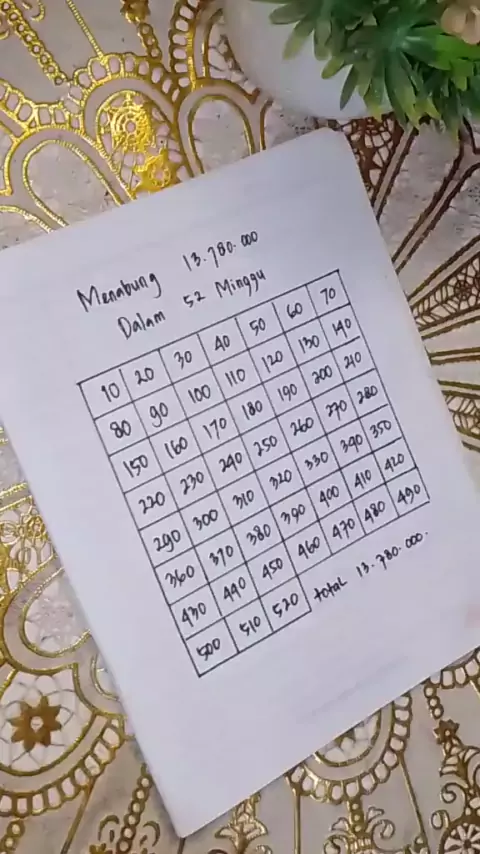 Menabung 13.780.000
Dalam 52 Minggu
10 20 30 40 50 60 70
80 90 100 110 120 130 140
150 160 170 180 190 200 210
220 230 240 250 260 270 280
290 300 310 320 330 340 350
360 370 380 390 400 410 420
430 440 450 460 470 480 490
500 510 520 total 13.780.000.